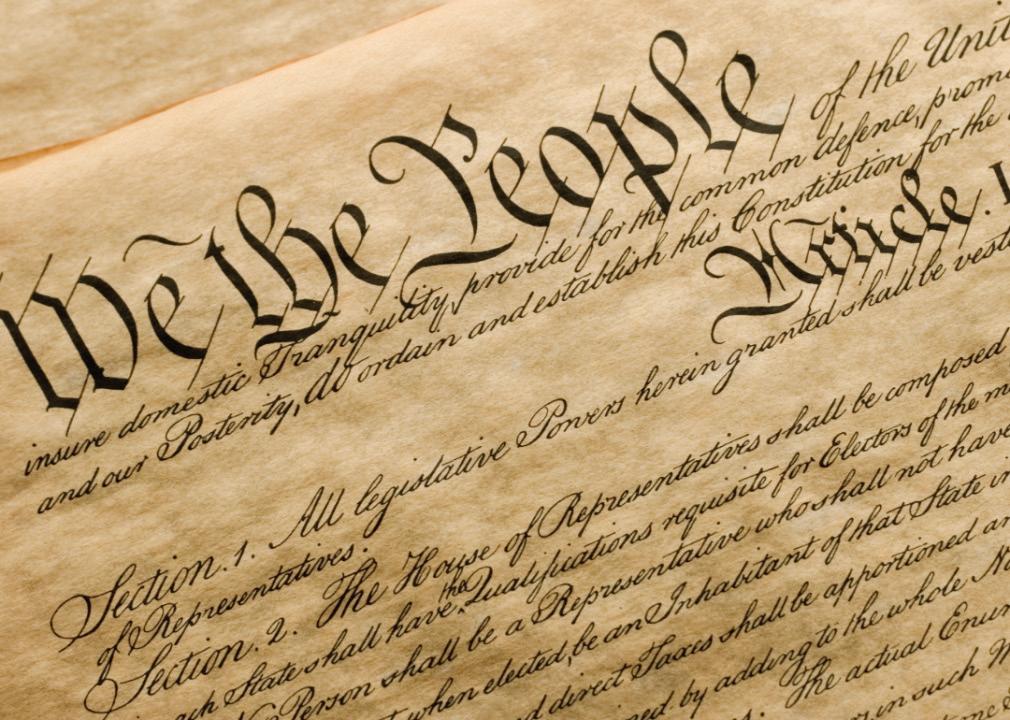 We the People of the Unit
insure domestic Tranquility, provide for the common defence, promo
and our Posterity, do ordain and establish this Constitution for the
Article. I
Section. 1. All legislative Powers herein granted shall be vest
of Representatives.
Section. 2. The House of Representatives shall be composed
ach State shall have the Qualifications requisite for Electors of the m
No Person shall be a Representative who shall not have
when elected, be an Inhabitant of that State in
d direct Taxes shall be apportioned a
ned by adding to the whole N
The actual Enum
in such M